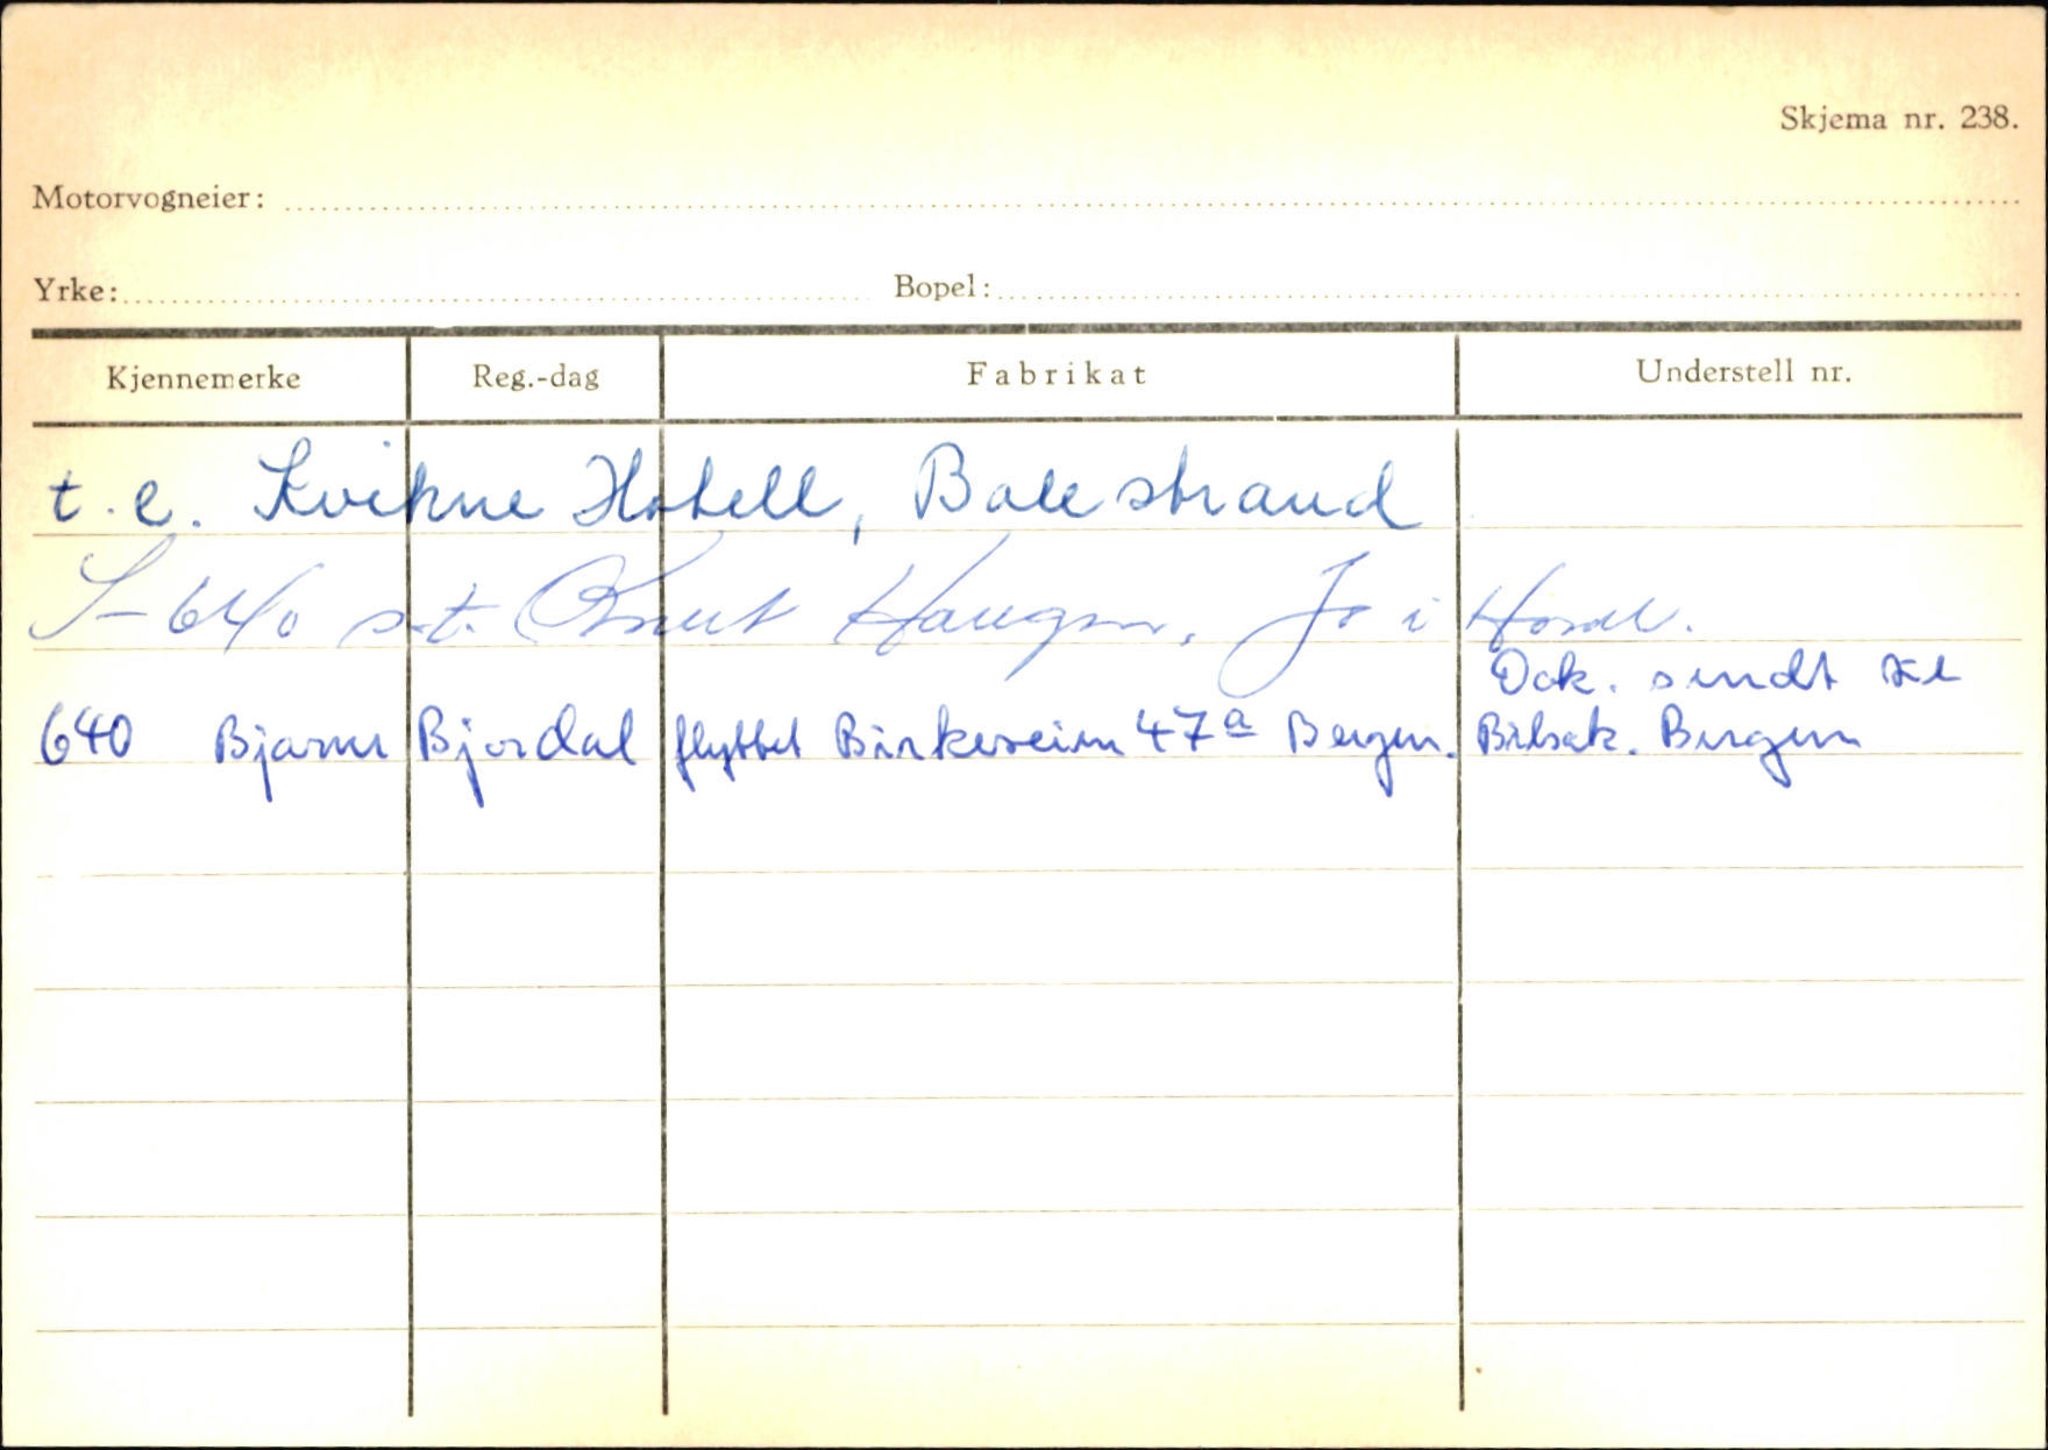 Skjema nr. 238.
Motorvogneier:
Yrke: Bopel:
Kjennemerke Reg.-dag Fabrikat Understell nr.
t.e. Kvikne Hotell, Balestrand
S-640 s.t. Knut Haugen, Jo i Hord.
Dok. sendt
640 Bjarne Bjordal flyttet Birkeveien 47a Bergen. Bilsak. Bergen